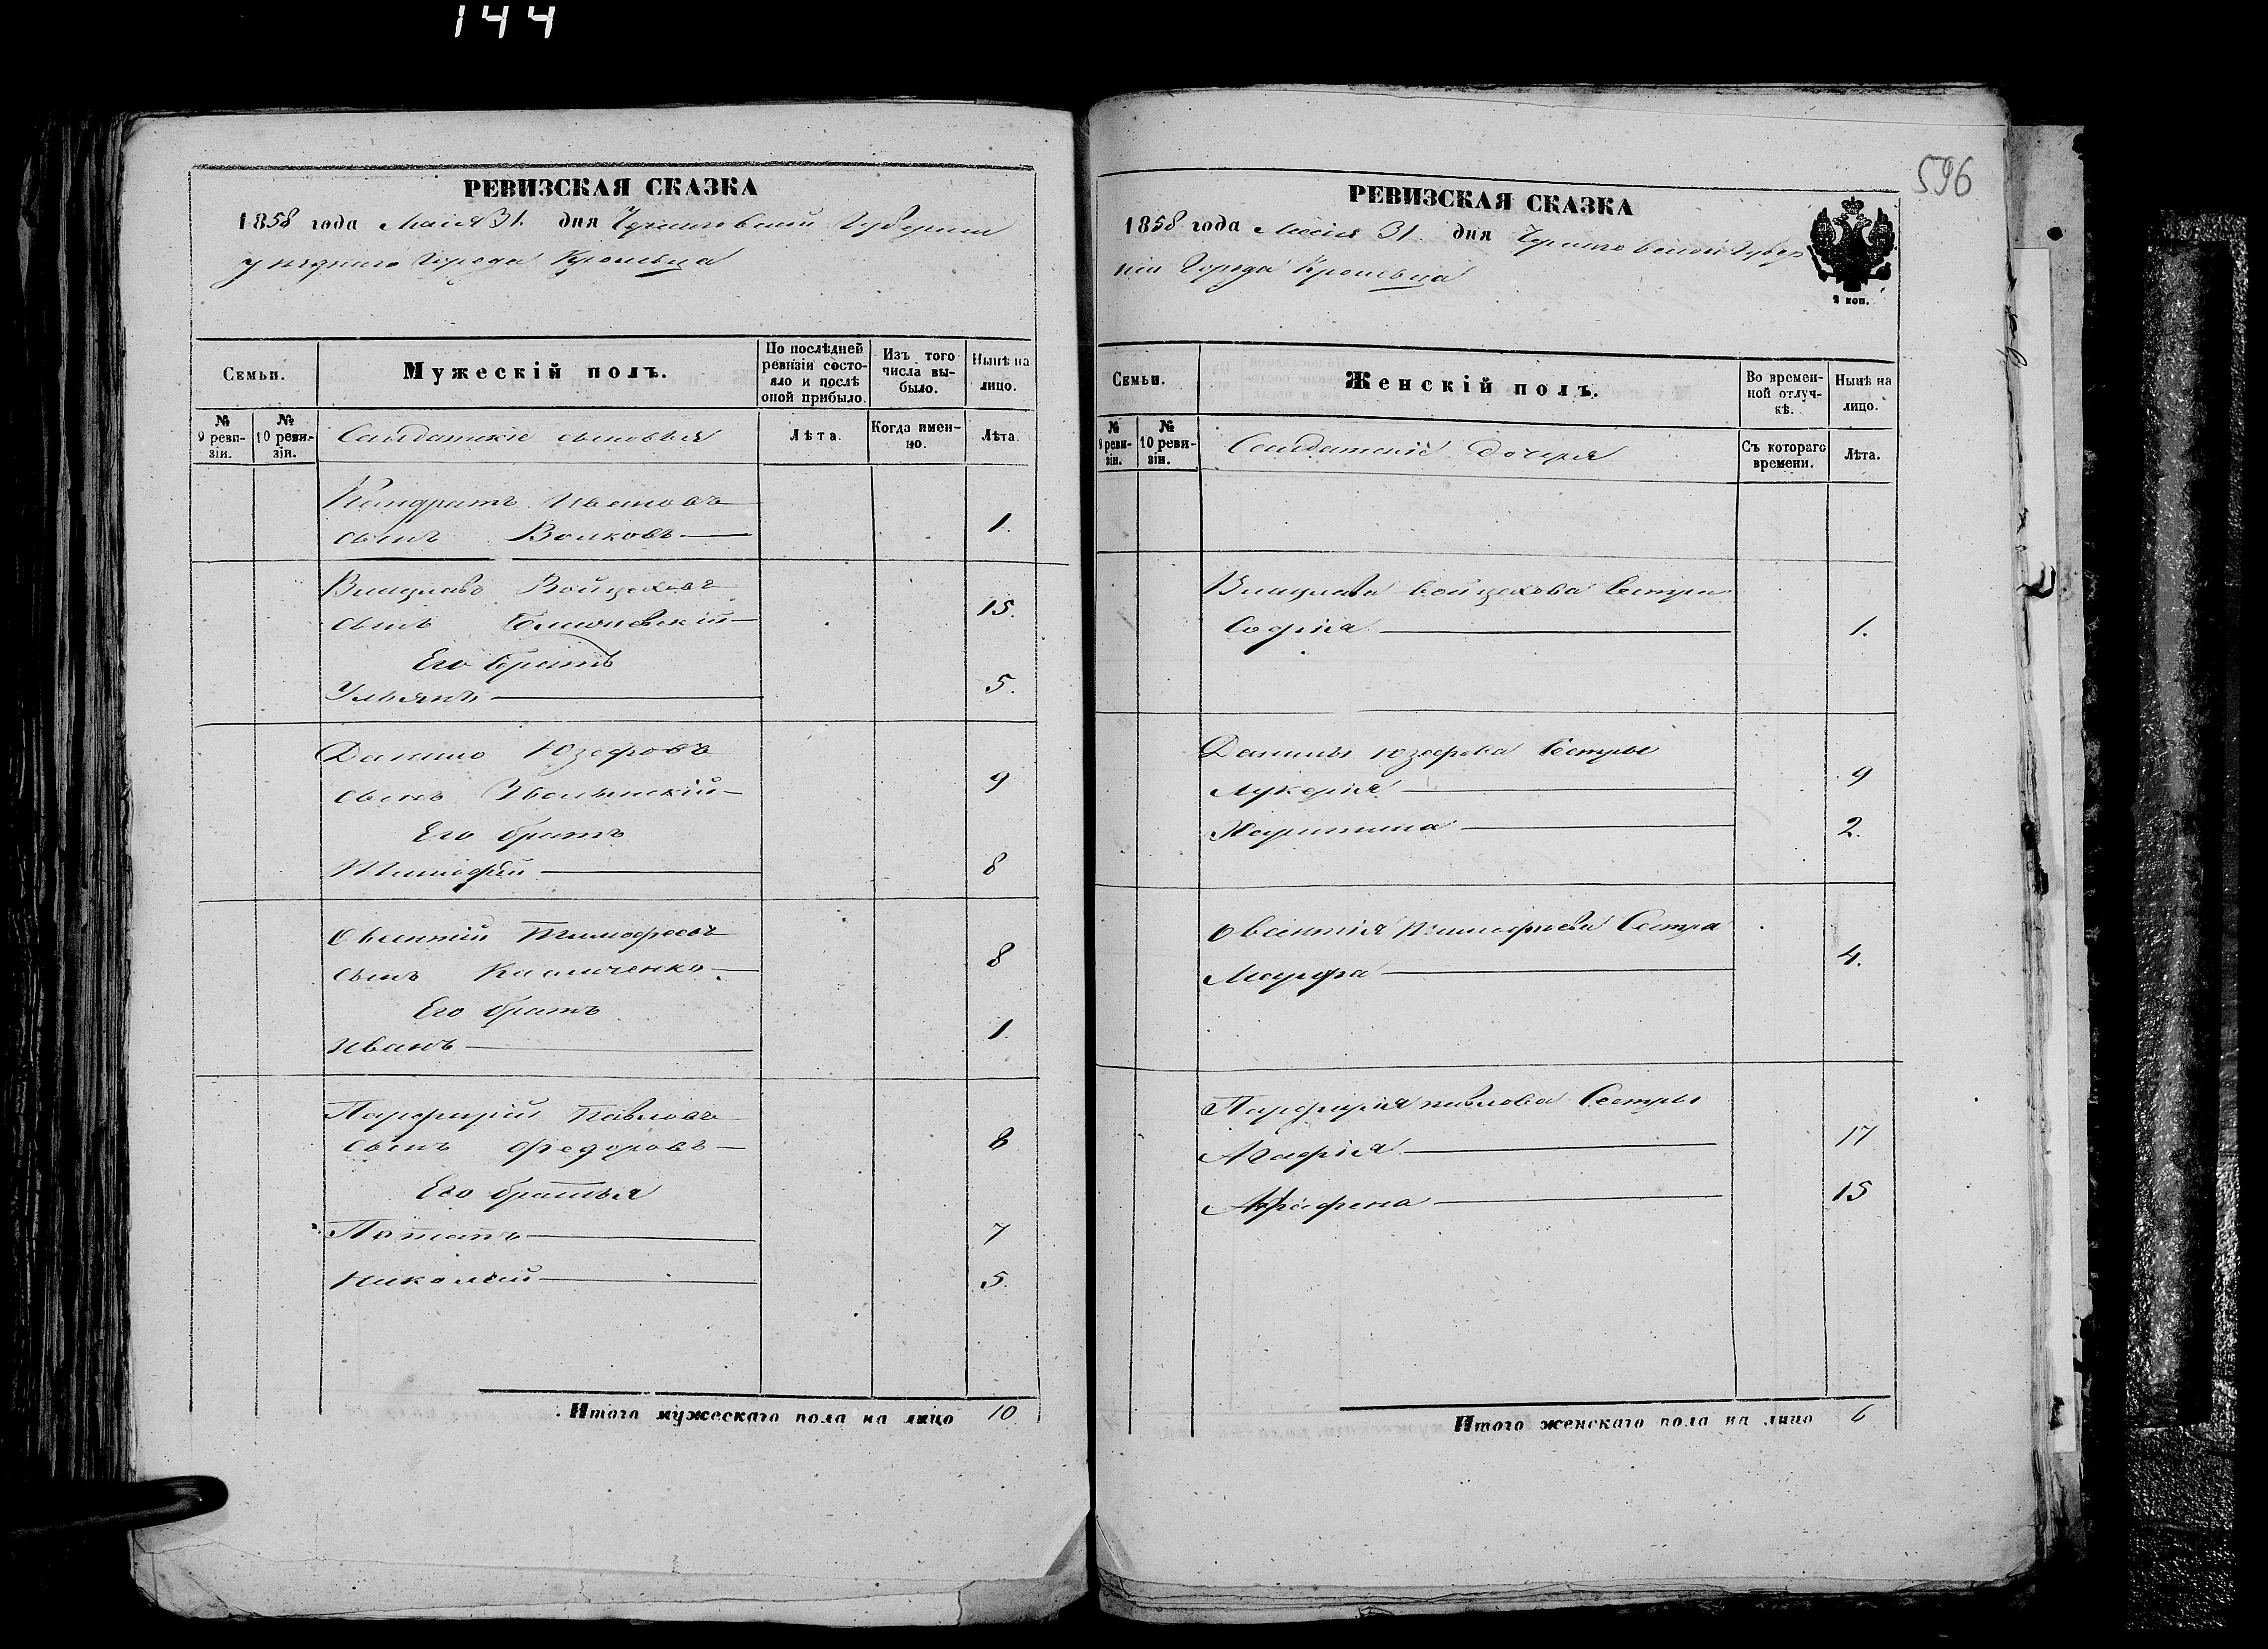 144
596
РЕВИЗСКАЯ СКАЗКА
1858 года Маія 31. дня Черниговской Губерніи
уѣзднаго Города Кролевца
Семьи.
Мужескій полъ.
По послѣдней ревизіи состояло и послѣ оной прибыло.
Изъ того числа выбыло.
Нынѣ на лицо.
№ 9 ревизіи.
№ 10 ревизіи.
Солдатскіе сыновья
Лѣта.
Когда именно.
Лѣта.
Кондратъ Ивановъ
сынъ Волковъ 1.
Войцеховъ 15.
сынъ
Его братъ
Ульянъ 5.
Данило Юзефовъ
сынъ 9
Его братъ
Тимофей 8
Тимофеевъ
сынъ 8
Его братъ
Иванъ 1.
Парфирій Павловъ
сынъ Федоровъ 8
Его братья
Потапъ 7
Николай 5.
Итого мужескаго пола на лицо 10
РЕВИЗСКАЯ СКАЗКА
1858 года Маія 31. дня Черниговской Губер
ніи Города Кролевца
2 коп.
Семьи.
Женскій полъ.
Во временной отлучкѣ.
Нынѣ на лицо.
№ 9 ревизіи.
№ 10 ревизіи.
Солдатскіе дочеря
Съ котораго времени.
Лѣта.
Войцехова Сестра
Софія 1.
Данилы Юзефова Сестры
Лукерія 9
Харитина 2.
Тимофеева Сестра
Марфа 4.
Парфирія Павлова Сестры
Агафія 17
15
Итого женскаго пола на лицо 6